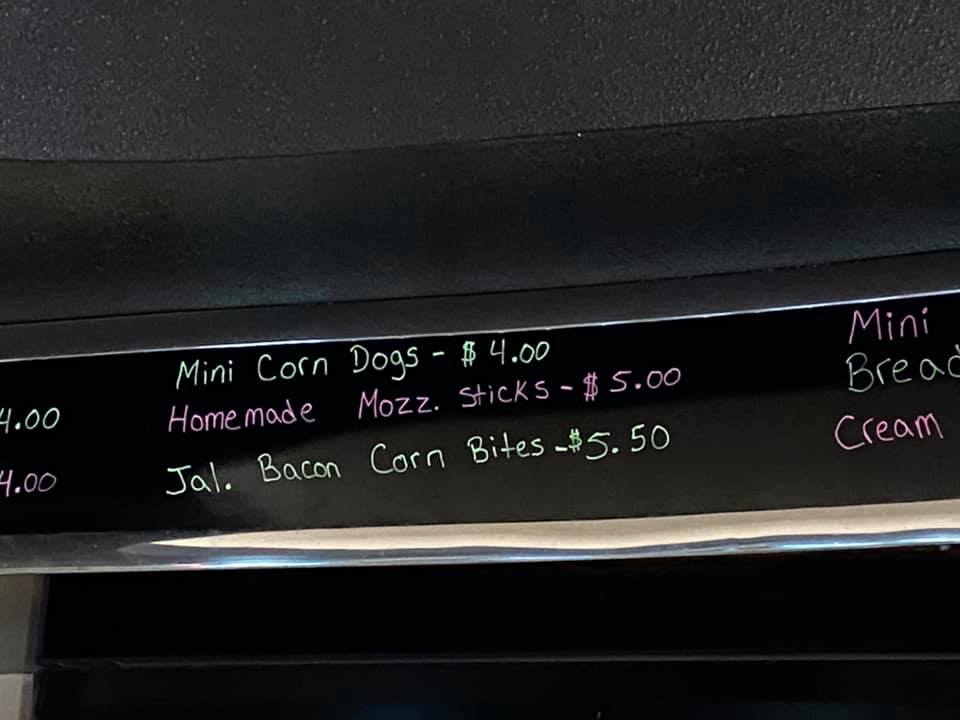 4.00
4.00
Mini Corn Dogs - $ 4.00
Homemade Mozz. Sticks - $ 5.00
Jal. Bacon Corn Bites - $5.50
Mini
Bread
Cream